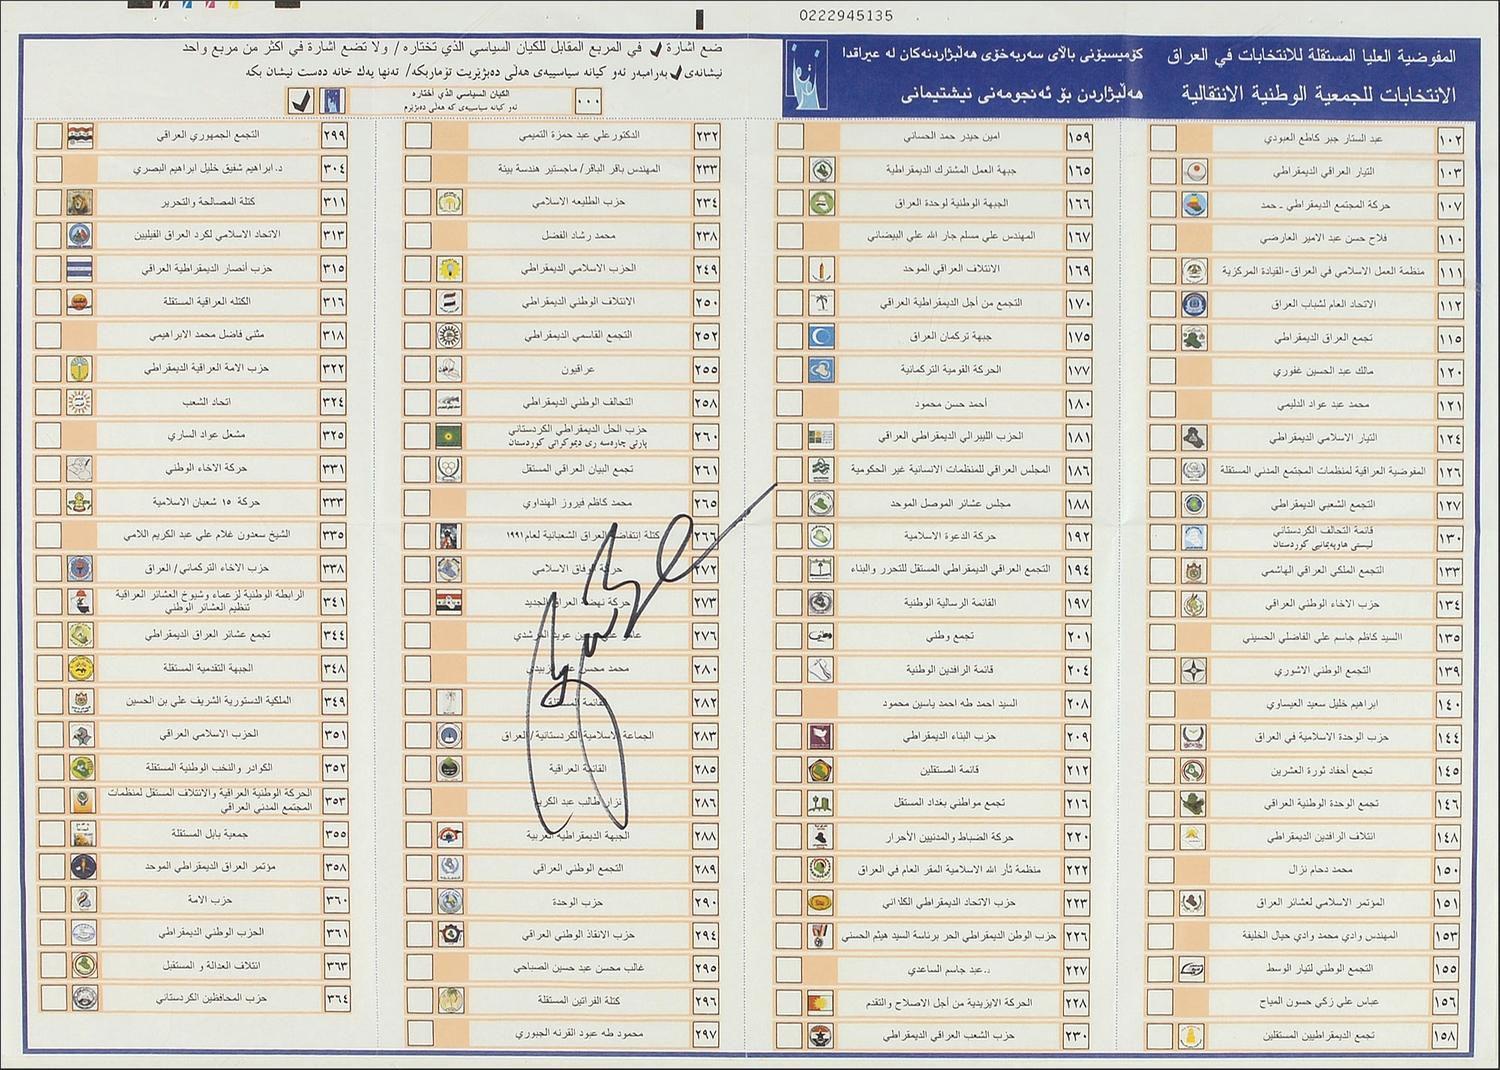 0222945135
المفوضية العليا المستقلة للانتخابات في العراق
كۆمیسیۆنی باڵای سەربەخۆی هەڵبژاردنەكان لە عیراقدا
الانتخابات للجمعية الوطنية الانتقالية
هەڵبژاردن بۆ ئەنجومەنی نیشتیمانی
ضع اشارة ✓ في المربع المقابل للكيان السياسي الذي تختاره / ولا تضع اشارة في اكثر من مربع واحد
نیشانەی ✓ بەرامبەر ئەو كیانە سیاسییەی هەڵی دەبژێریت تۆماربكە/ تەنها یەك خانە دەست نیشان بكە
... الكيان السياسي الذي أختاره
ئەو كیانە سیاسییەی كە هەڵی دەبژێرم
١٠٢ عبد الستار جبر كاطع العبودي
١٠٣ التيار العراقي الديمقراطي
١٠٧ حركة المجتمع الديمقراطي - حمد
١١٠ فلاح حسن عبد الامير العارضي
١١١ منظمة العمل الاسلامي في العراق-القيادة المركزية
١١٢ الاتحاد العام لشباب العراق
١١٥ تجمع العراق الديمقراطي
١٢٠ مالك عبد الحسين غفوري
١٢١ محمد عبد عواد الدليمي
١٢٤ التيار الاسلامي الديمقراطي
١٢٦ المفوضية العراقية لمنظمات المجتمع المدني المستقلة
١٢٧ التجمع الشعبي الديمقراطي
١٣٠ قائمة التحالف الكردستاني
لیستی هاوپەیمانی كوردستان
١٣٣ التجمع الملكي العراقي الهاشمي
١٣٤ حزب الاخاء الوطني العراقي
١٣٥ االسيد كاظم جاسم علي الفاضلي الحسيني
١٣٩ التجمع الوطني الاشوري
١٤٠ ابراهيم خليل سعيد العيساوي
١٤٤ حزب الوحدة الاسلامية في العراق
١٤٥ تجمع أحفاد ثورة العشرين
١٤٦ تجمع الوحدة الوطنية العراقي
١٤٨ ائتلاف الرافدين الديمقراطي
١٥٠ محمد دحام نزال
١٥١ المؤتمر الاسلامي لعشائر العراق
١٥٣ المهندس وادي محمد وادي حيال الخليفة
١٥٥ التجمع الوطني لتيار الوسط
١٥٦ عباس علي زكي حسون المياح
١٥٨ تجمع الديمقراطيين المستقلين
١٥٩ امين حيدر حمد الحساني
١٦٥ جبهة العمل المشترك الديمقراطية
١٦٦ الجبهة الوطنية لوحدة العراق
١٦٧ المهندس علي مسلم جار الله علي البيضاني
١٦٩ الائتلاف العراقي الموحد
١٧٠ التجمع من أجل الديمقراطية العراقي
١٧٥ جبهة تركمان العراق
١٧٧ الحركة القومية التركمانية
١٨٠ أحمد حسن محمود
١٨١ الحزب الليبرالي الديمقراطي العراقي
١٨٦ المجلس العراقي للمنظمات الانسانية غير الحكومية
١٨٨ مجلس عشائر الموصل الموحد
١٩٢ حركة الدعوة الاسلامية
١٩٤ التجمع العراقي الديمقراطي المستقل للتحرر والبناء
١٩٧ القائمة الرسالية الوطنية
٢٠١ تجمع وطني
٢٠٤ قائمة الرافدين الوطنية
٢٠٨ السيد احمد طه احمد ياسين محمود
٢٠٩ حزب البناء الديمقراطي
٢١٢ قائمة المستقلين
٢١٦ تجمع مواطني بغداد المستقل
٢٢٠ حركة الضباط والمدنيين الأحرار
٢٢٢ منظمة ثأر الله الاسلامية المقر العام في العراق
٢٢٣ حزب الاتحاد الديمقراطي الكلداني
٢٢٦ حزب الوطن الديمقراطي الحر برئاسة السيد هيثم الحسني
٢٢٧ د.عبد جاسم الساعدي
٢٢٨ الحركة الايزيدية من أجل الاصلاح والتقدم
٢٣٠ حزب الشعب العراقي الديمقراطي
٢٣٢ الدكتور علي عبد حمزة التميمي
٢٣٣ المهندس باقر الباقر/ ماجستير هندسة بيئة
٢٣٤ حزب الطليعه الاسلامي
٢٣٨ محمد رشاد الفضل
٢٤٩ الحزب الاسلامي الديمقراطي
٢٥٠ الائتلاف الوطني الديمقراطي
٢٥٢ التجمع القاسمي الديمقراطي
٢٥٥ عراقيون
٢٥٨ التحالف الوطني الديمقراطي
٢٦٠ حزب الحل الديمقراطي الكردستاني
پارتی چارەسە ری دیموكراتی كوردستان
٢٦١ تجمع البيان العراقي المستقل
٢٦٥ محمد كاظم فيروز الهنداوي
٢٦٦ كتلة إنتفاضة العراق الشعبانية لعام ١٩٩١
٢٧٢ حركة الوفاق الاسلامي
٢٧٣ حركة نهضة العراق الجديد
٢٧٦ حسين عويد المرشدي
٢٨٠ محمد محسن علي الزبيدي
٢٨٢ القائمة المستقلة
٢٨٣ الجماعة الاسلامية الكردستانية / العراق
٢٨٥ القائمة العراقية
٢٨٦ نزار طالب عبد الكريم
٢٨٨ الجبهة الديمقراطية العربية
٢٨٩ التجمع الوطني العراقي
٢٩٠ حزب الوحدة
٢٩٤ حزب الانقاذ الوطني العراقي
٢٩٥ غالب محسن عبد حسين الصباحي
٢٩٦ كتلة الفراتين المستقلة
٢٩٧ محمود طه عبود القرنه الجبوري
٢٩٩ التجمع الجمهوري العراقي
٣٠٤ د. ابراهيم شفيق خليل ابراهيم البصري
٣١١ كتلة المصالحة والتحرير
٣١٣ الاتحاد الاسلامي لكرد العراق الفيليين
٣١٥ حزب أنصار الديمقراطية العراقي
٣١٦ الكتله العراقية المستقلة
٣١٨ مثنى فاضل محمد الابراهيمي
٣٢٢ حزب الامة العراقية الديمقراطي
٣٢٤ اتحاد الشعب
٣٢٥ مشعل عواد الساري
٣٣١ حركة الاخاء الوطني
٣٣٣ حركة ١٥ شعبان الاسلامية
٣٣٥ الشيخ سعدون غلام علي عبد الكريم اللامي
٣٣٨ حزب الاخاء التركماني / العراق
٣٤١ الرابطة الوطنية لزعماء وشيوخ العشائر العراقية
تنظيم العشائر الوطني
٣٤٤ تجمع عشائر العراق الديمقراطي
٣٤٨ الجبهة التقدمية المستقلة
٣٤٩ الملكية الدستورية الشريف علي بن الحسين
٣٥١ الحزب الاسلامي العراقي
٣٥٢ الكوادر والنخب الوطنية المستقلة
٣٥٣ الحركة الوطنية العراقية والائتلاف المستقل لمنظمات
المجتمع المدني العراقي
٣٥٥ جمعية بابل المستقلة
٣٥٨ مؤتمر العراق الديمقراطي الموحد
٣٦٠ حزب الامة
٣٦١ الحزب الوطني الديمقراطي
٣٦٣ ائتلاف العدالة و المستقبل
٣٦٤ حزب المحافظين الكردستاني